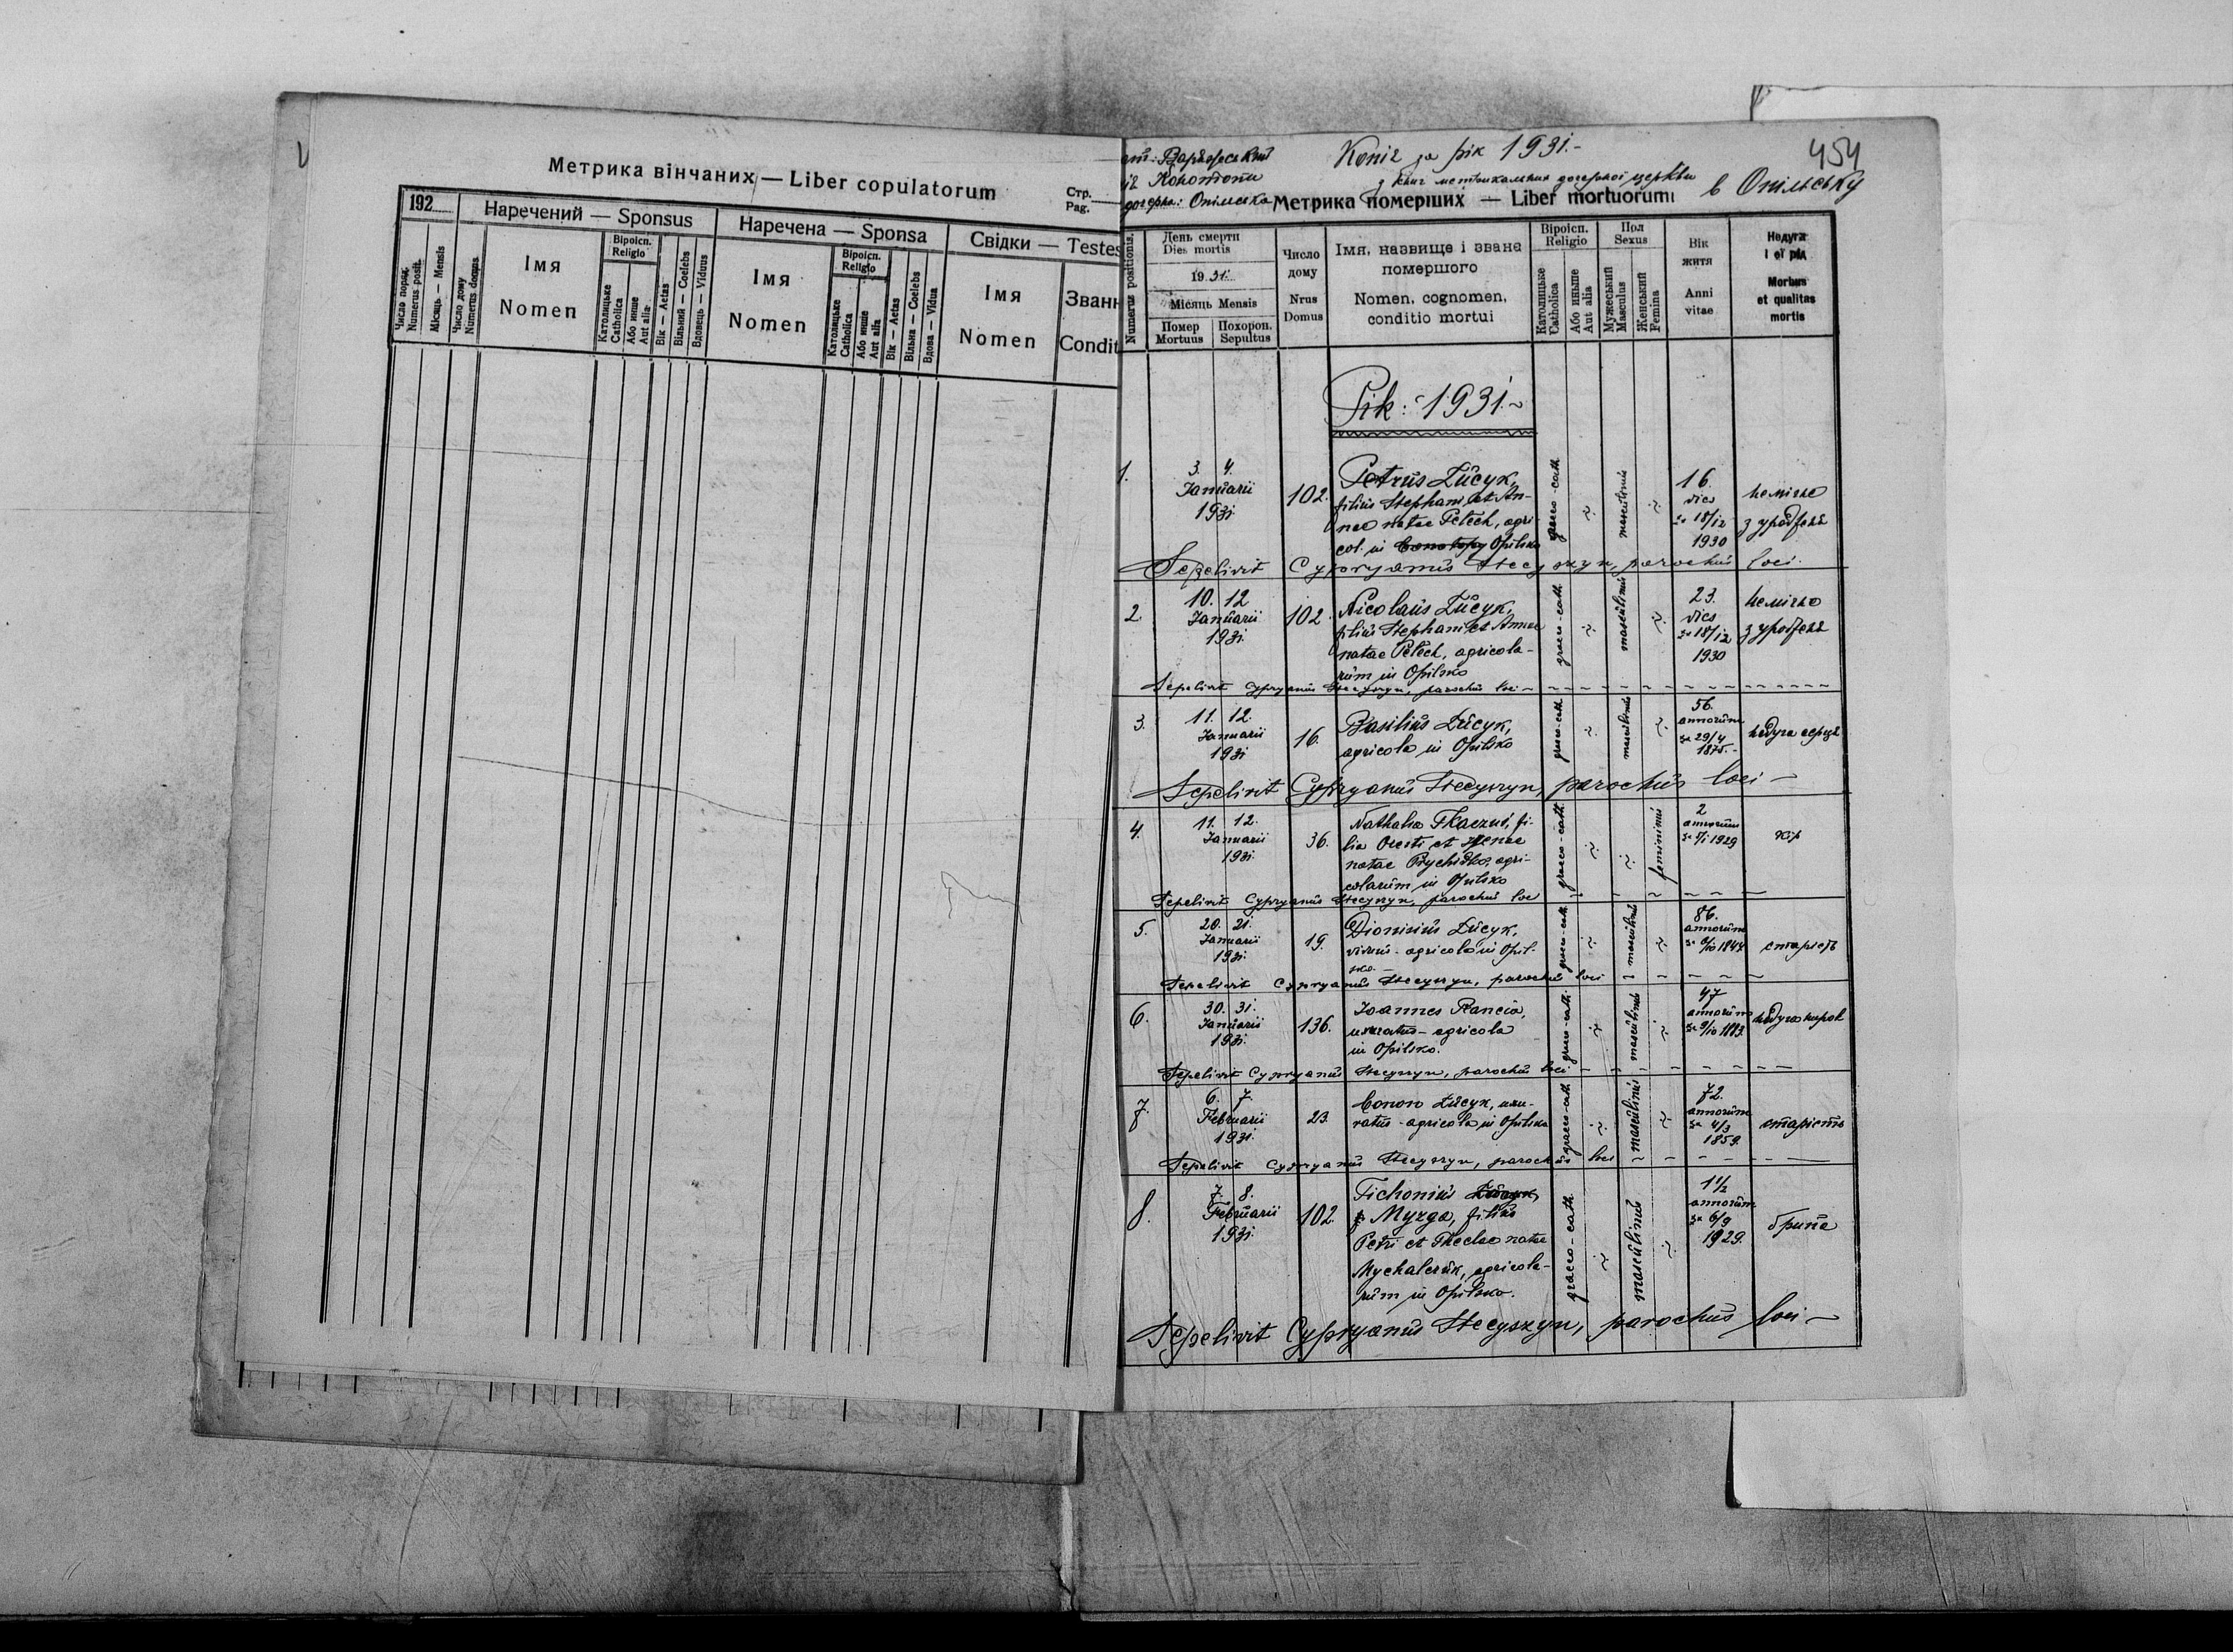 Метрика вінчаних — Liber copulatorum
Стр.
Pag.
192
Наречений — Sponsus
Наречена — Sponsa
Свідки — Testes
Число поряд.
Numerus posit.
Місяць — Mensis
Число дому
Numerus domus
Імя
Nomen
Віроісп.
Religio
Католицьке
Catholica
Або инше
Aut alia
Вік — Aetas
Вільний — Coelebs
Вдовець — Viduus
Імя
Nomen
Віроісп.
Religio
Католицьке
Catholica
Або инше
Aut alia
Вік — Aetas
Вільна — Coelebs
Вдова — Vidua
Імя
Nomen
Званн
Condit
Копія за рік 1931.-
454
з книг метрикальних дочерної церкви
в Опільську
Метрика померших — Liber mortuorum
Numerus positionis.
День смерти
Dies mortis
1931.
Місяць Mensis
Помер
Mortuus
Похорон.
Sepultus
Число
дому
Nrus
Domus
Імя, назвище і званє
помершого
Nomen, cognomen,
conditio mortui
Віроісп.
Religio
Католицьке
Catholica
Або иньше
Aut alia
Пол
Sexus
Мужеський
Masculus
Женський
Femina
Вік
життя
Anni
vitae
Недуга
і єї рід
Morbus
et qualitas
mortis
Рік: 1931.~
1.
3. 4.
Januarii
1931
102.
Petrus Łucyk,
filius Stephani et An-
nae natae Petech, agri-
col. in Opilsko
graeco-cath.
masculinus
16.
dies
18/12
1930
неміч
з уродження
Sepelivit Cypryanus Stecyszyn, parochus loci.
2.
10. 12
Januarii
1931.
102.
Nicolaus Łucyk,
filius Stephani et Annae
natae Petech, agricola-
rum in Opilsko
graeco-cath.
masculinus
23.
dies
18/12
1930
неміч
з уродження
Sepelivit Cypryanus Stecyszyn, parochus loci
3.
11. 12.
Januarii
1931
16.
Basilius Łucyk,
agricola in Opilsko
graeco-cath.
masculinus
56.
annorum
29/4
1875.-
недуга серця
Sepelivit Cypryanus Stecyszyn, parochus loci —
4.
11. 12.
Januarii
1931.
36.
Nathalia Tkaczuk, fi-
lia Oresti et Irenae
natae Prychidko, agri-
colarum in Opilsko
graeco-cath.
femininus
2
annorum
1929
кір
Sepelivit Cypryanus Stecyszyn, parochus loci
5.
20. 21.
Januarii
1931.
19.
Dionisius Łucyk,
viduus - agricola in Opil-
sko.
graeco-cath.
masculinus
86.
annorum
1844
старість
Sepelivit Cypryanus Stecyszyn, parochus loci
6.
30. 31.
Januarii
1931.
136.
Joannes Rancia,
uxuratus - agricola
in Opilsko.
graeco-cath.
masculinus
47
annorum
9/10 1883.
недуга нирок
Sepelivit Cypryanus Stecyszyn, parochus loci
7.
6. 7.
Februarii
1931.
23.
Conon Łucyk, uxu-
ratus - agricola in Opilsko
graeco-cath.
masculinus
72.
annorum
4/3
1859.
старість
Sepelivit Cypryanus Stecyszyn, parochus loci
8.
7. 8.
Februarii
1931.
102.
Tichonius
Myzga, filius
Petri et Theclae natae
Mychalczuk, agricola-
rum in Opilsko.
graeco-cath.
masculinus
1 1/2
annorum
6/9
1929.
Sepelivit Cypryanus Stecyszyn, parochus loci —